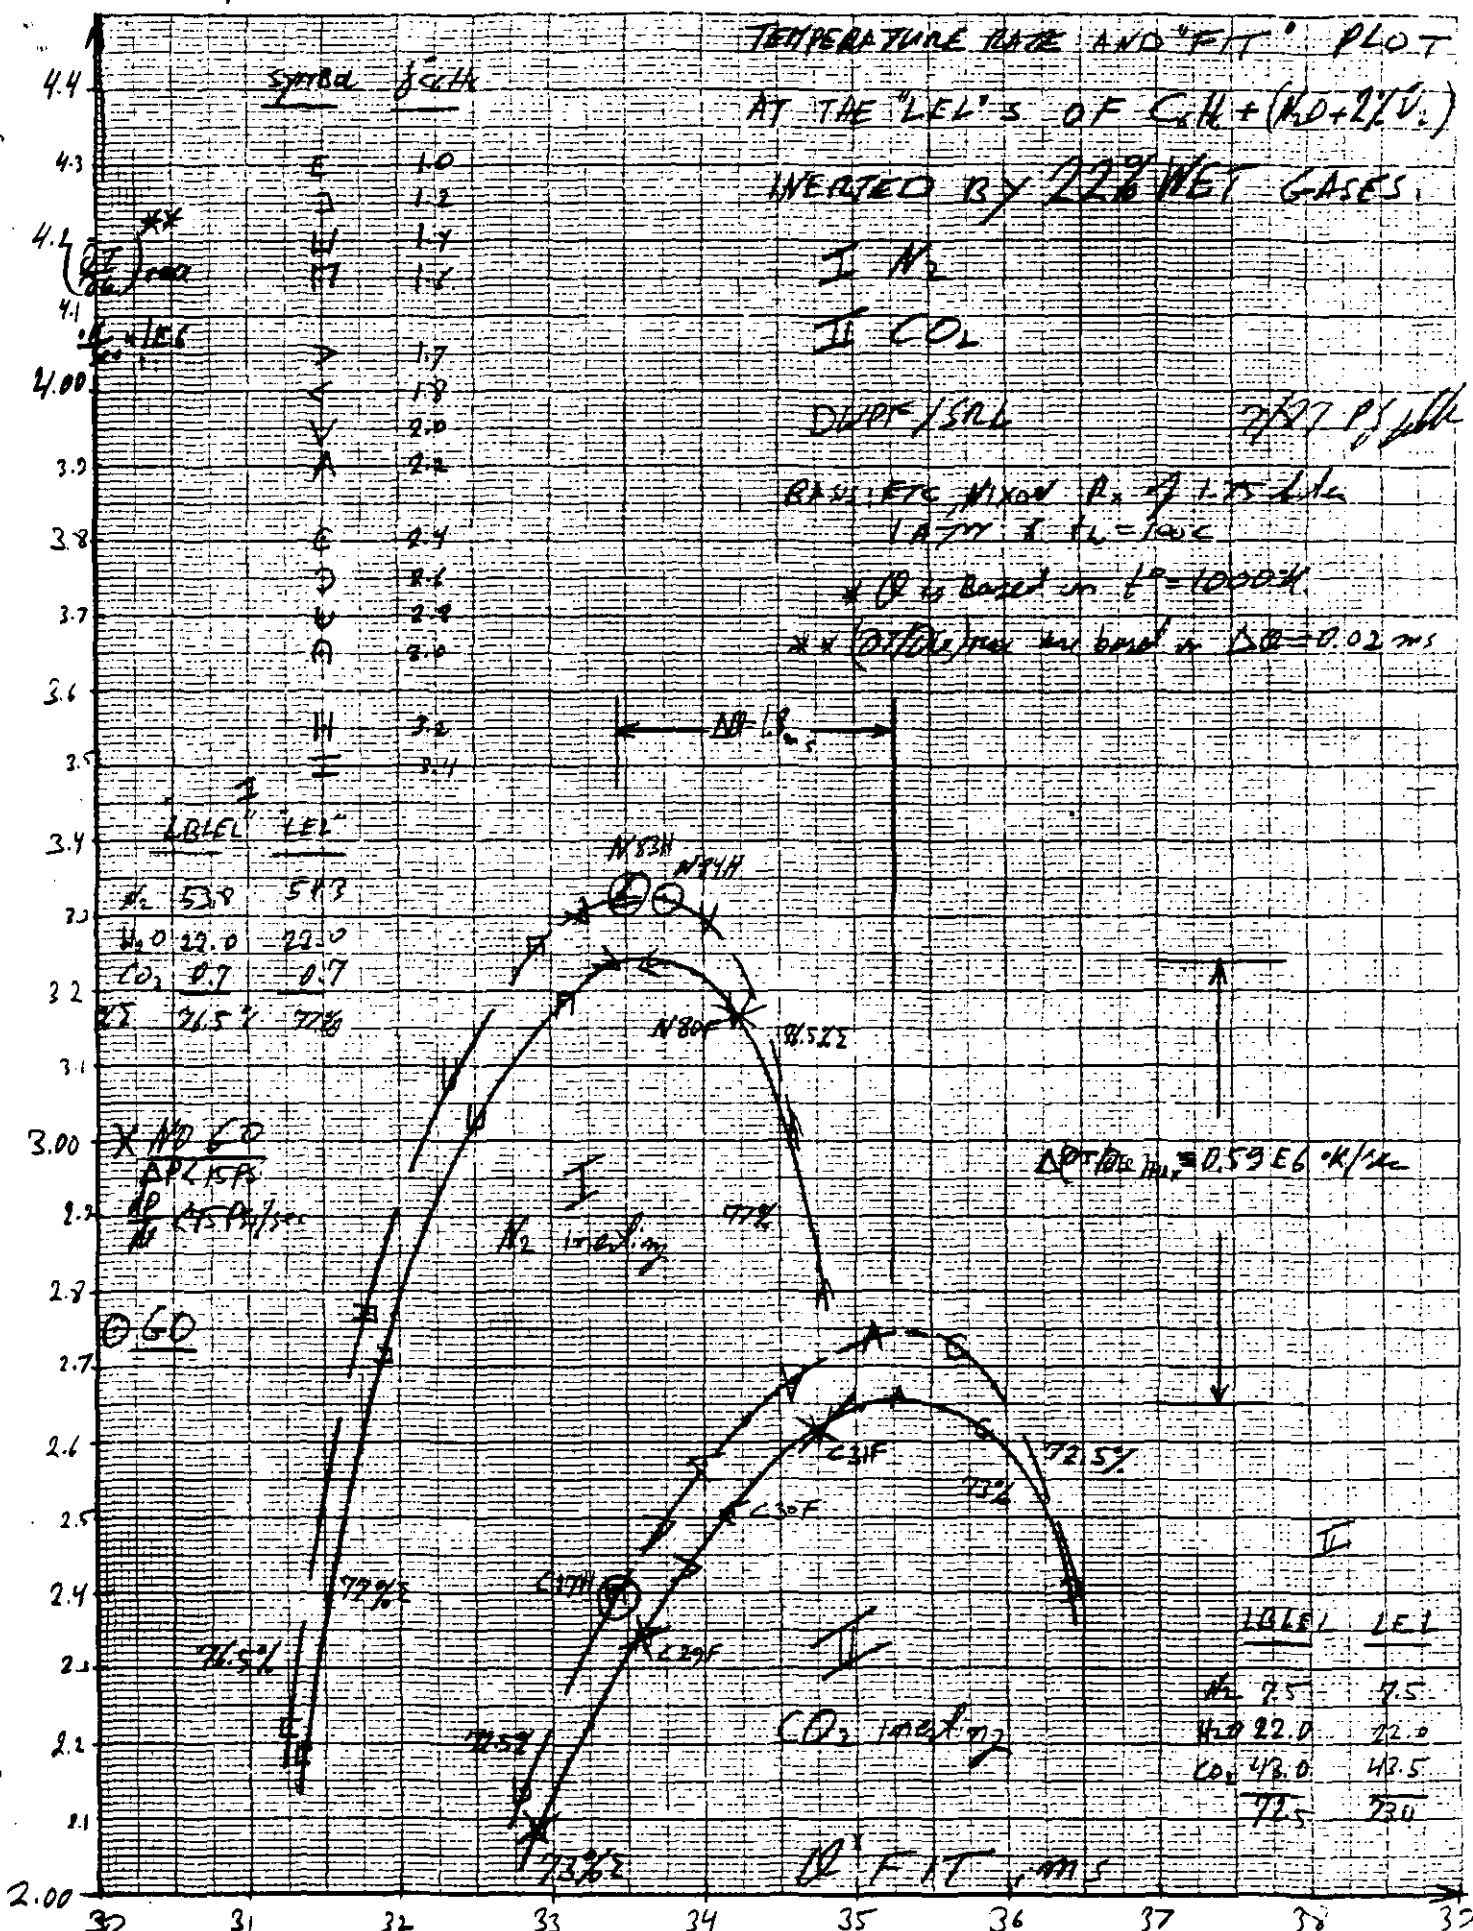 TEMPERATURE RATE AND "FIT" PLOT
AT THE "LEL"S OF C6H6 + (N2O + 2% O2)
INERTED BY 22% WET GASES.
I N2
II CO2
DWPF/SRL
1 ATM
* θ is Based on t° = 1000°K
** (DT/Dθ)max are based on Δθ = 0.02 ms
SYMBOL
1.0
1.2
1.4
1.6
1.7
1.8
2.0
2.2
2.4
2.6
2.8
3.0
3.2
3.4
4.4
4.3
4.2
4.1
4.00
3.9
3.8
3.7
3.6
3.5
3.4
3.3
3.2
3.1
3.00
2.9
2.8
2.7
2.6
2.5
2.4
2.3
2.2
2.1
2.00
**
I
"LBLEL" "LEL"
N2 53.8 54.3
H2O 22.0 22.0
CO2 0.7 0.7
%Σ 76.5% 77%
X NO GO
ΔP < 15 PS
⊙ GO
Δθ = 1.8 ms
N83H
N84H
N80F
76.5%Σ
77%
I
N2 inerting
77%Σ
76.5%
Δ(DT/Dθ)max = 0.59 E6 °K/sec
C31F
C30F
C37H
C29F
72.5%
73%
72.5%
73%Σ
II
CO2 inerting
II
LBLEL LEL
N2 7.5 7.5
H2O 22.0 22.0
CO2 43.0 43.5
72.5 73.0
θ* FIT, ms
30 31 32 33 34 35 36 37 38 39